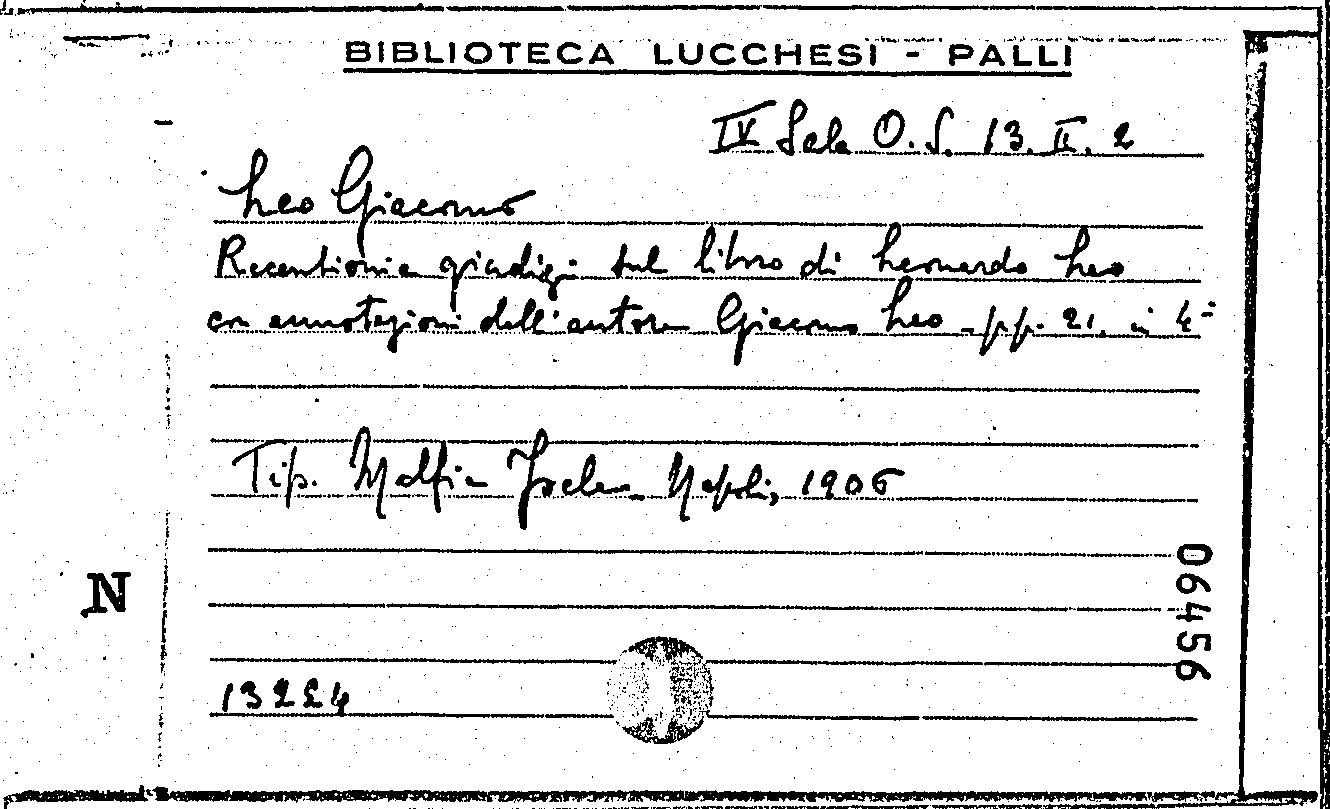 BIBLIOTECA LUCCHESI - PALLI
IV Sala O. S. 13. II. 2
Leo Giacomo
Recensioni e giudizi sul libro di Leonardo Leo
con annotazioni dell'autore Giacomo Leo - pp. 21. in 4°
Tip. Melfi e Joele Napoli, 1906
06456
N
13224